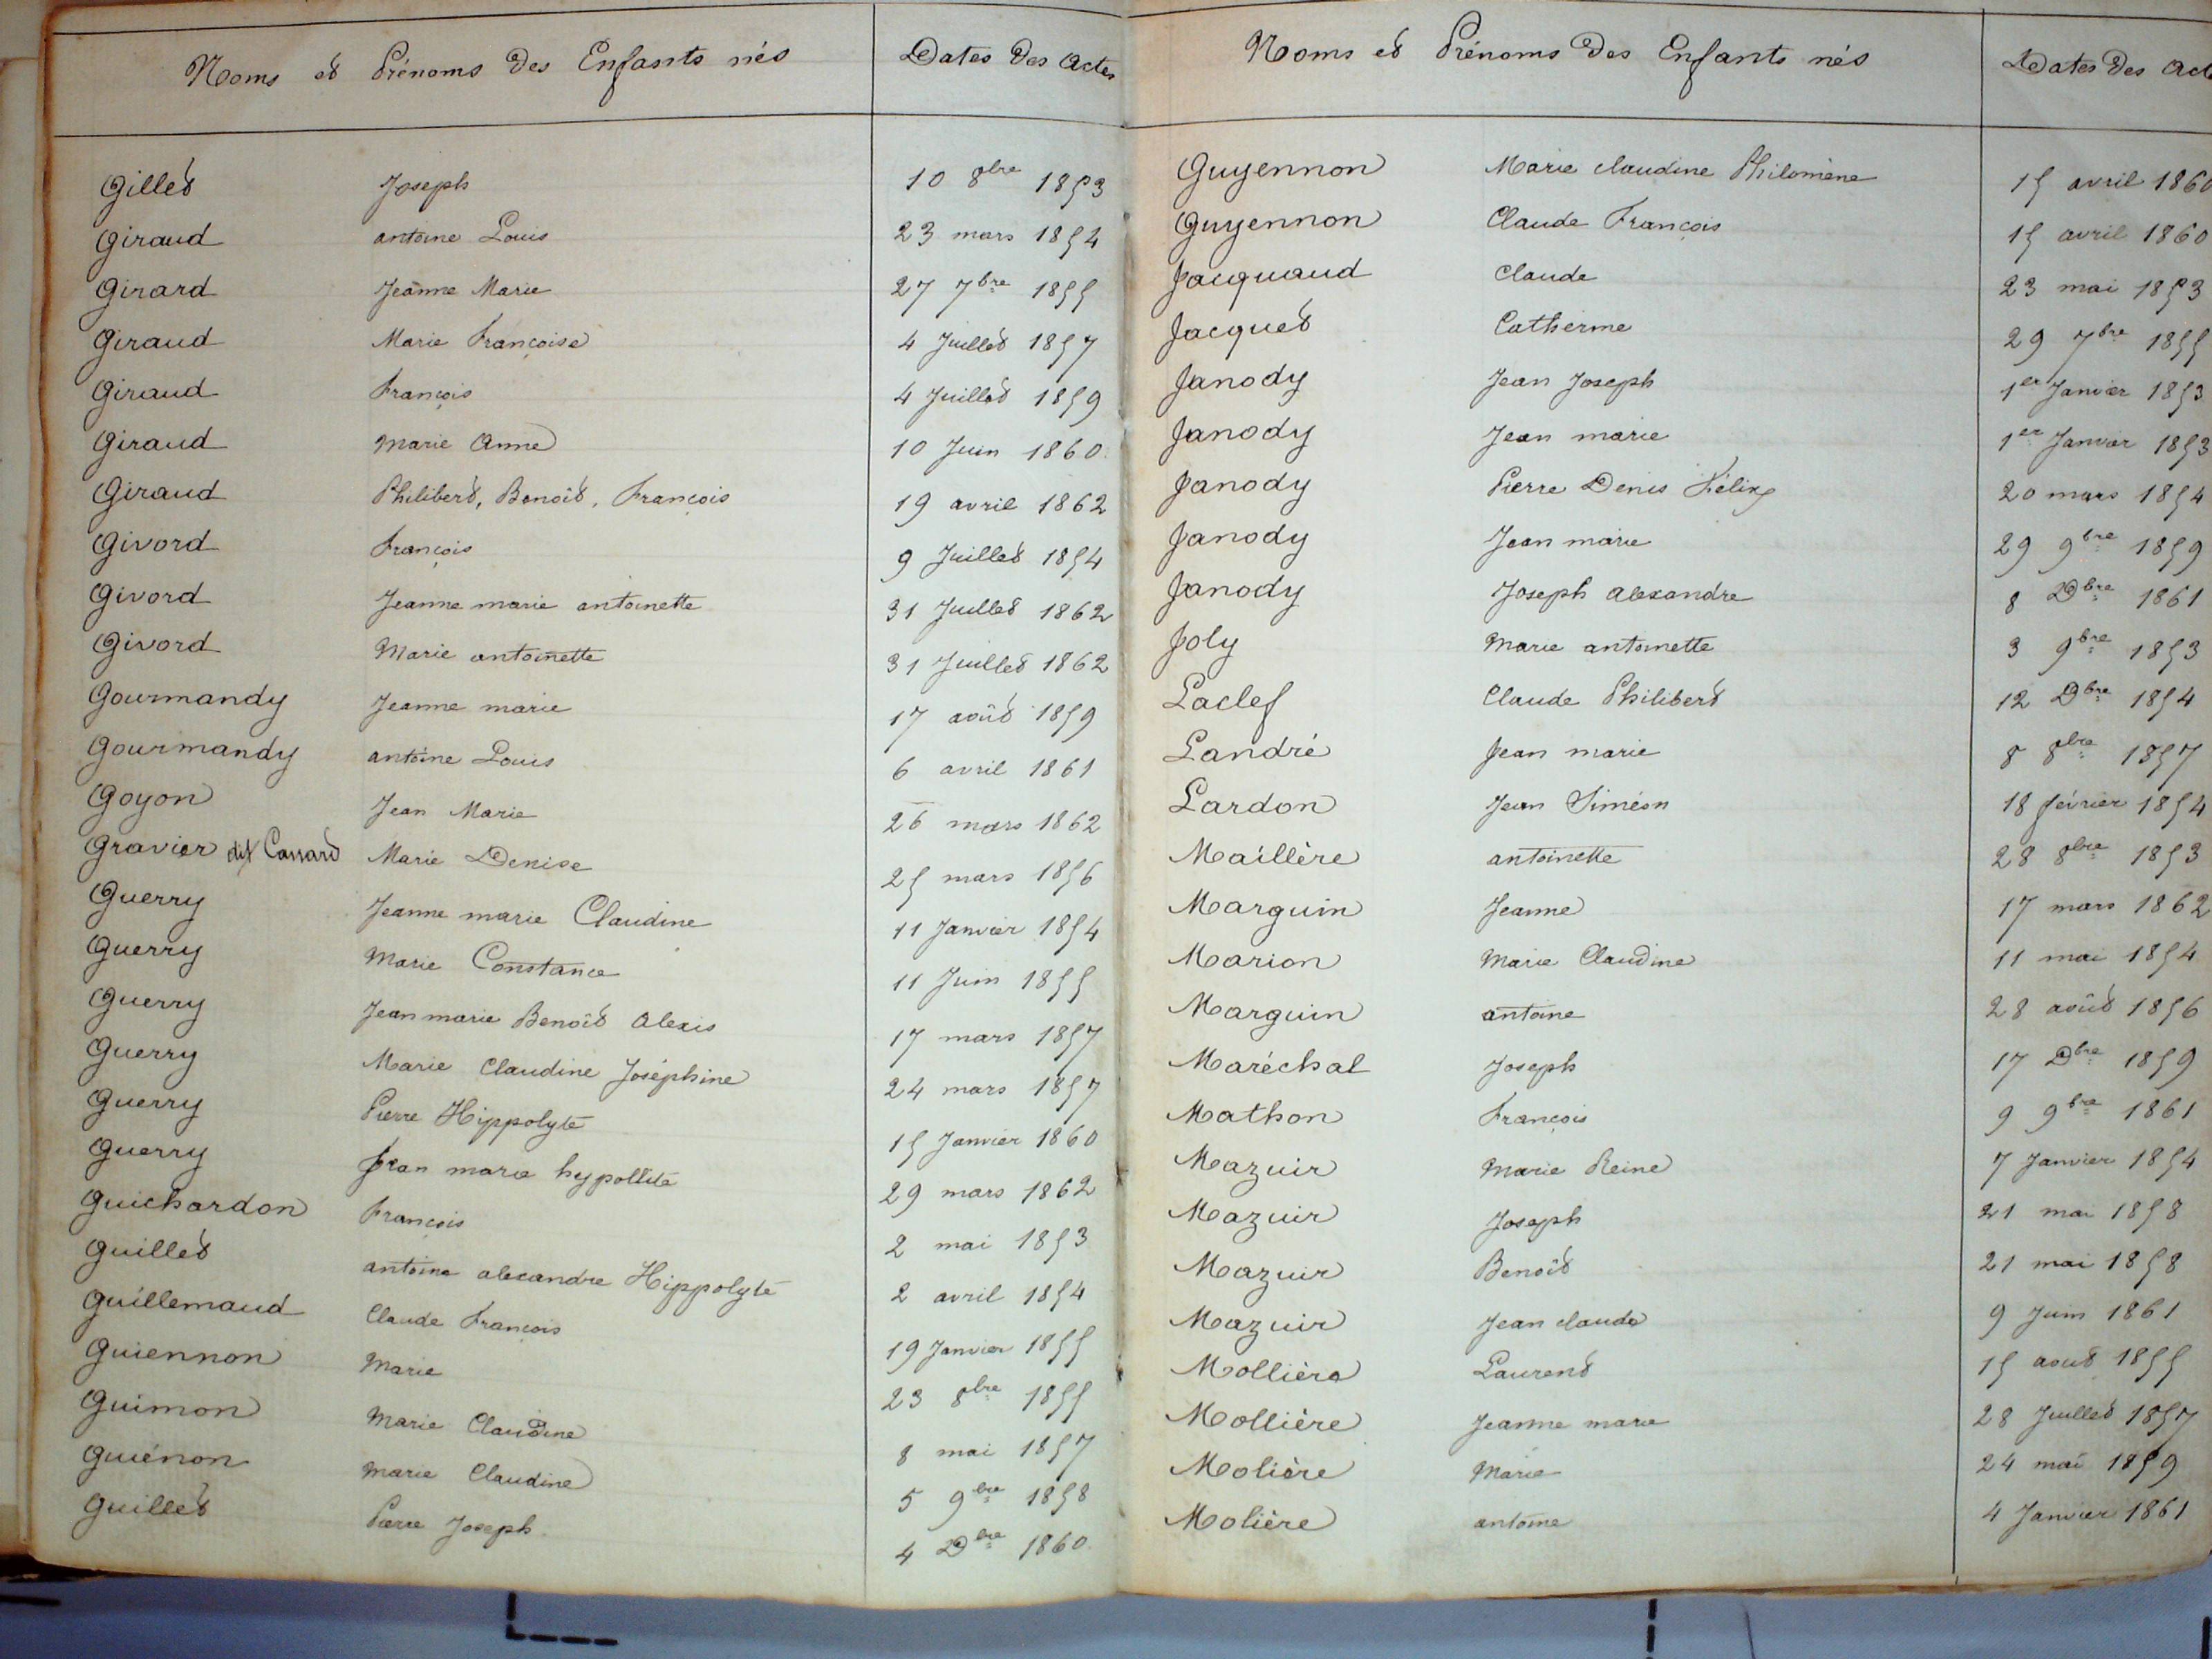 Noms et Prénoms des Enfants nés Dates des Actes
Gillet Joseph 10 8bre 1853
Giraud antoine Louis 23 mars 1854
Girard Jeanne Marie 27 7bre 1855
Giraud Marie Françoise 4 Juillet 1857
Giraud François 4 Juillet 1859
Giraud Marie Anne 10 Juin 1860
Giraud Philibert, Benoît, François 19 avril 1862
Givord François 9 Juillet 1854
Givord Jeanne marie antoinette 31 Juillet 1862
Givord Marie antoinette 31 Juillet 1862
Gourmandy Jeanne marie 17 août 1859
Gourmandy antoine Louis 6 avril 1861
Goyon Jean Marie 26 mars 1862
Gravier dit Canard Marie Denise 25 mars 1856
Guerry Jeanne marie Claudine 11 Janvier 1854
Guerry Marie Constance 11 Juin 1855
Guerry Jean marie Benoît Alexis 17 mars 1857
Guerry Marie Claudine Joséphine 24 mars 1857
Guerry Pierre Hippolyte 15 Janvier 1860
Guerry Jean marie hypollite 29 mars 1862
Guichardon François 2 mai 1853
Guillet antoine alexandre Hippolyte 2 avril 1854
Guillemaud Claude François 19 Janvier 1855
Guiennon Marie 23 8bre 1855
Guimon Marie Claudine 8 mai 1857
Guiénon Marie Claudine 5 9bre 1858
Guillet Pierre Joseph 4 Dbre 1860
Noms et Prénoms des Enfants nés Dates des Acte
Guyennon Marie claudine Philomène 15 avril 1860
Guyennon Claude François 15 avril 1860
Jacquaud Claude 23 mai 1853
Jacquet Catherine 29 7bre 1855
Janody Jean Joseph 1er Janvier 1853
Janody Jean marie 1er Janvier 1853
Janody Pierre Denis Félix 20 mars 1854
Janody Jean marie 29 9bre 1859
Janody Joseph alexandre 8 Dbre 1861
Joly Marie antoinette 3 9bre 1853
Laclef Claude Philibert 12 Dbre 1854
Landré Jean marie 8 8bre 1857
Lardon Jean Siméon 18 février 1854
Maillère antoinette 28 8bre 1853
Marguin Jeanne 17 mars 1862
Marion Marie Claudine 11 mai 1854
Marguin antoine 28 août 1856
Maréchal Joseph 17 Dbre 1859
Mathon François 9 9bre 1861
Mazuir Marie Reine 7 Janvier 1854
Mazuir Joseph 21 mai 1858
Mazuir Benoît 21 mai 1858
Mazuir Jean claude 9 Juin 1861
Mollière Laurent 15 aout 1855
Mollière Jeanne marie 28 Juillet 1857
Molière Marie 24 mai 1859
Molière antoine 4 Janvier 1861